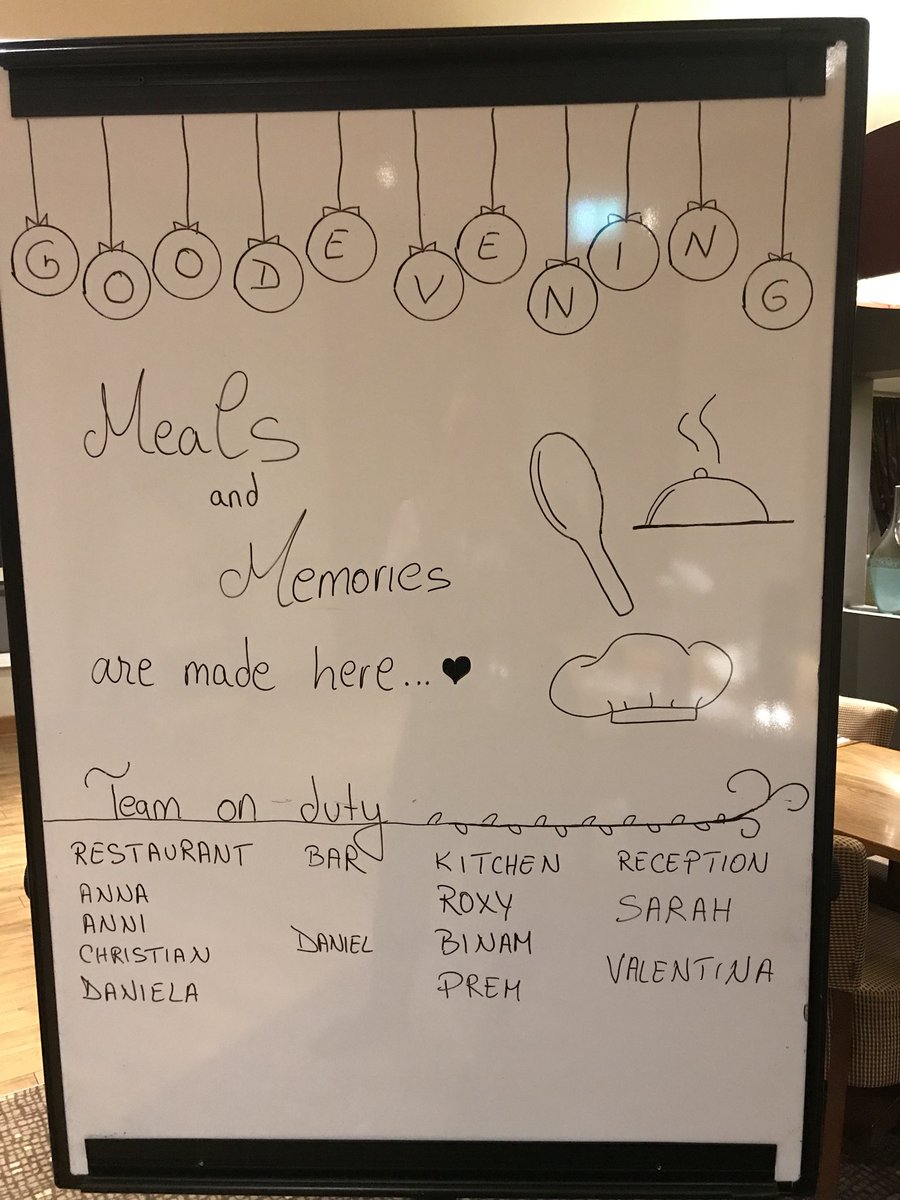 GOOD EVENING
Meals
and
Memories
are made here...♥
Team on duty
RESTAURANT BAR KITCHEN RECEPTION
ANNA ROXY SARAH
ANNI
CHRISTIAN DANIEL BINAM VALENTINA
DANIELA PREM